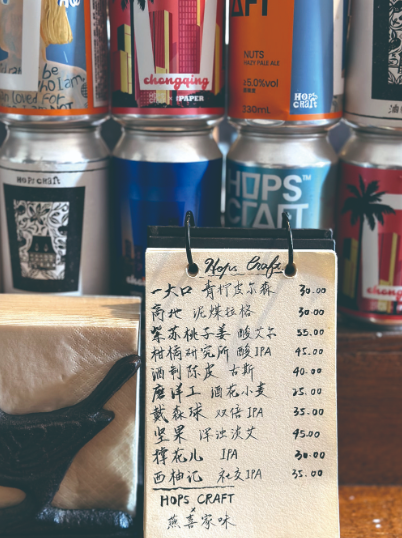 be
Who I am.
chongqing
PAPER
AFT
NUTS
CRAZY PALE ALE
5.0%vol
330ML
HOPS
CRAFT
HOPS CRAFT
HOPS
CRAFT
Hops Craft
一大口 青柠皮尔森 30.00
高地 泥煤拉格 30.00
紫苏桃子姜 酸艾尔 55.00
柑橘研究所 酸IPA 45.00
酒制陈皮 古斯 40.00
磨洋工 酒花小麦 25.00
戴森球 双倍IPA 35.00
坚果 浑浊淡艾 45.00
撑花儿 IPA 30.00
西柚记 社交IPA 35.00
HOPS CRAFT
×
燕喜家味